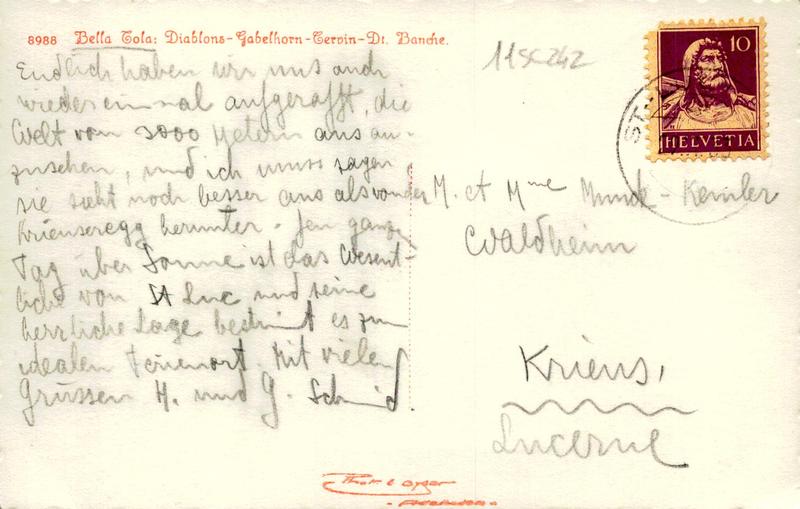 8988 Bella Tola: Diablons-Gabelhorn-Cervin-Dt. Banche.
11SC242
10
HELVETIA
ST.
Endlich haben wir uns auch
wieder einmal aufgerafft, die
Welt von 3000 Metern aus an-
zusehen, und ich muss sagen
sie sieht noch besser aus als von der
Krienseregg herunter. Den ganzen
Tag über Sonne ist das Wesent-
liche von St Luc und seine
herrliche Lage bestimt es zum
idealen Ferienort. Mit vielen
Grüssen H. und G. Schmid.
M. et Mme Munde-Kemler
Waldheim
Kriens,
Lucerne